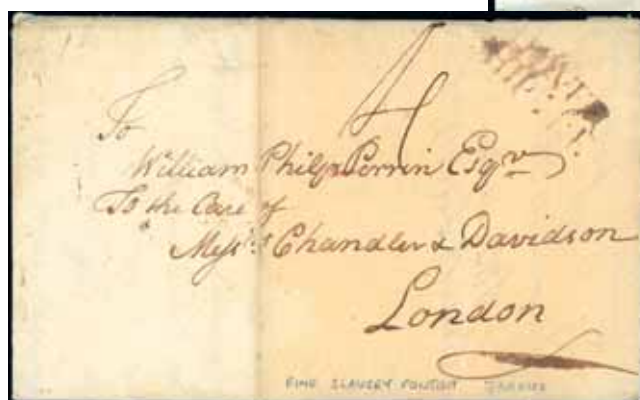 4
To
William Philp Perrin Esqr
To the Care of
Messrs Chandler & Davidson
London
FINE SLAVERY CONTENT